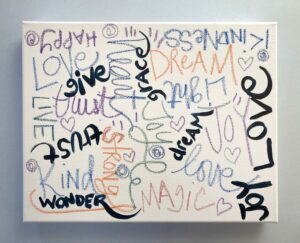 HAPPY
LOVE
LIVE
give
trust
trust
Kind
WONDER
STRONG
GRACE
DREAM
KINDNESS
light
dream
JOY
love
MAGIC
JOY LOVE